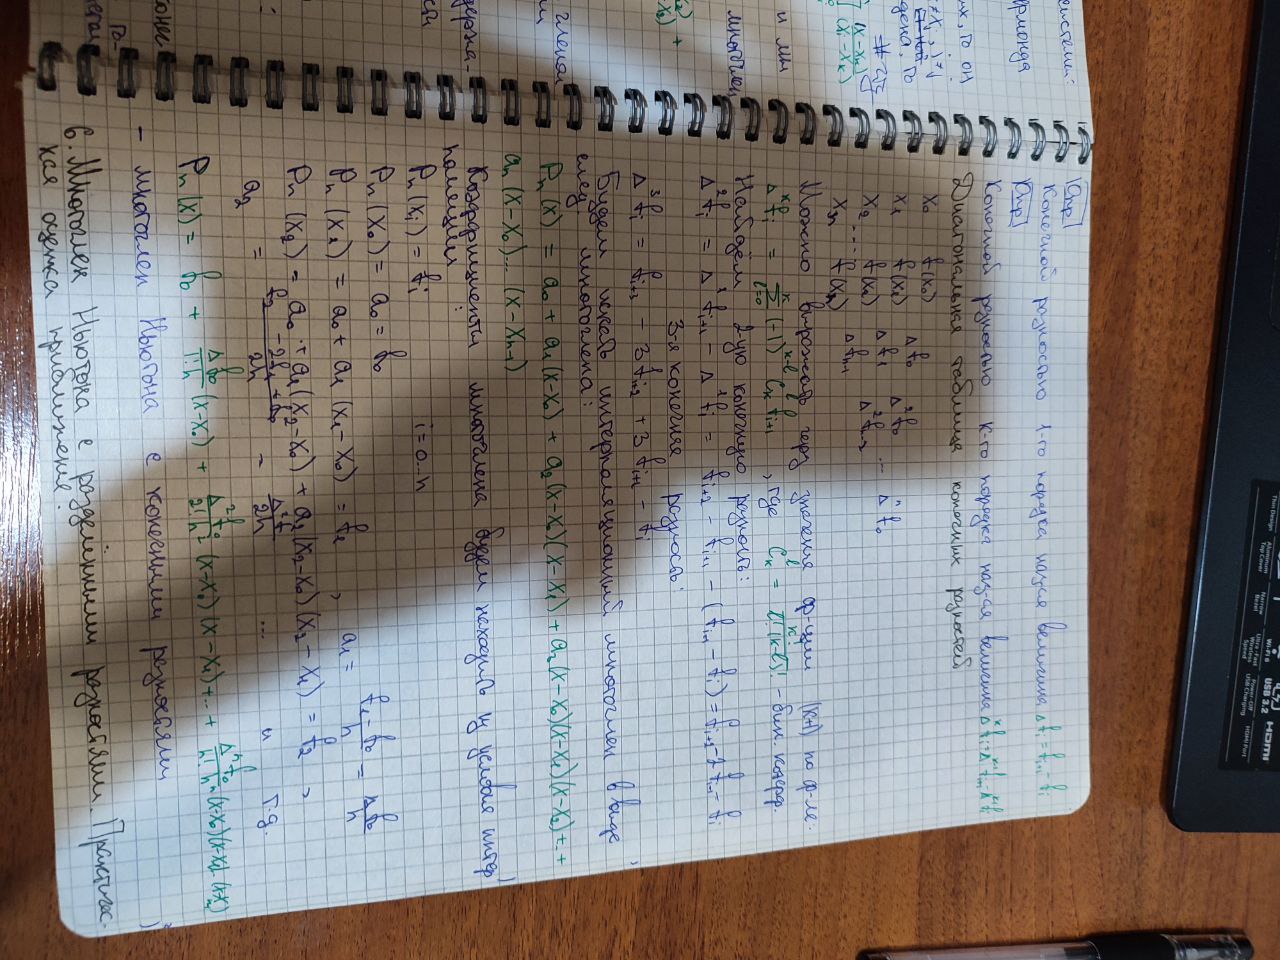 Thin Design
Aluminum Top Cover
Narrow Bezel
Wi-Fi 6
Ultra-Fast Wireless Speed
USB 3.2
Power-Off USB Charging
HDMI
HDMI Port
системе:
рмонда
их, то он
≠ xj, i≠j
дена, то
(x-xk)
(xi-xk)
и мы
многочлен
членом
держа-
сти
Опр
Конечной разностью 1-го порядка наз-ся величина Δfi = fi+1 - fi
Опр
Конечной разностью к-го порядка наз-ся величина Δ^k fi = Δ^k-1 fi+1 - Δ^k-1 fi
Диагональная таблица конечных разностей
x0 f(x0)
Δf0
x1 f(x1) Δ²f0
Δf1 ... Δ^n f0
x2 f(x2) Δ²fn-2
.... Δfn-1
xn f(xn)
Можно выражать через значение ф-ции (k+1) по ф-ле:
Δ^k fi = Σ l=0 k (-1)^k-l C_k^l fi+1 , где C_k^l = k! / l!(k-l)! - бин. коэфф.
Найдём 2-ую конечную разность:
Δ²fi = Δ¹fi+1 - Δ¹fi = fi+2 - fi+1 - (fi+1 - fi) = fi+2 - 2fi+1 - fi
3-я конечная разность:
Δ³fi = fi+3 - 3fi+2 + 3fi+1 - fi
Будем искать интерполяционный многочлен в виде
след. многочлена:
Pn(x) = a0 + a1(x-x0) + a2(x-x0)(x-x1) + a3(x-x0)(x-x1)(x-x2)+..+
an(x-x0)...(x-xn-1)
Коэффициенты многочлена будем находить из условия интер
поляции :
Pn(xi) = fi i=0..n
Pn(x0) = a0 = f0
Pn(x1) = a0 + a1(x1-x0) = f1 , a1 = (f1-f0)/h = Δf0/h
Pn(x2) = a0 + a1(x2-x0) + a2(x2-x0)(x2-x1) = f2 ,
a2 = (f2 - 2f1 + f0)/2h = Δ²f/2h ... и т.д.
Pn(x) = f0 + Δf0/1!h (x-x0) + Δ²f0/2!h² (x-x0)(x-x1)+..+ Δ^n f0/n!h^n (x-x0)(x-x1)..(x-xn-1)
- многочлен Ньютона с конечными разностями
6. Многочлен Ньютона с разделёнными разностями. Практичес-
кая оценка приближения.